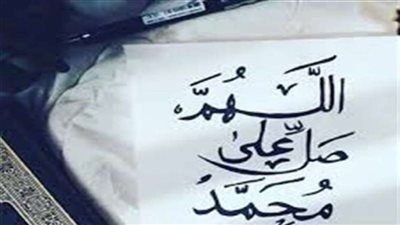 اللَّهُمَّ
صَلِّ عَلىٰ
مُحَمَّدُ